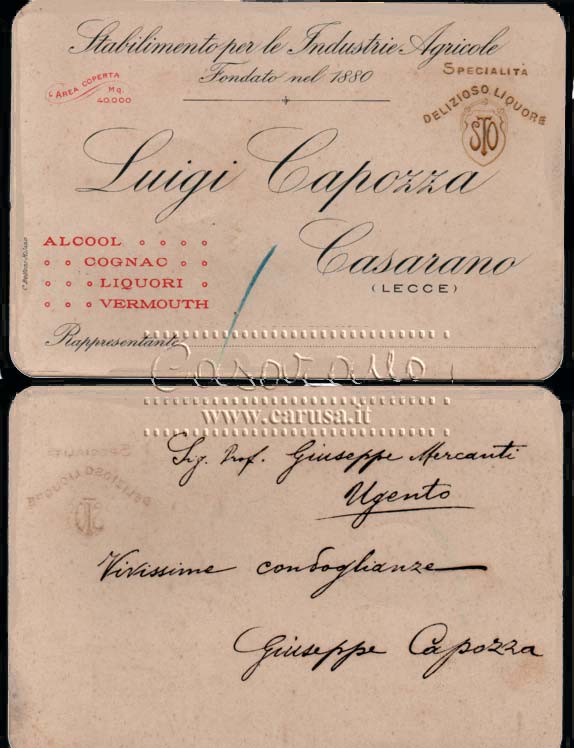 Stabilimento per le Industrie Agricole
Fondato nel 1880
AREA COPERTA
Mq.
40.000
SPECIALITÀ
DELIZIOSO LIQUORE
STO
Luigi Capozza
Casarano
(LECCE)
ALCOOL
COGNAC
LIQUORI
VERMOUTH
Rappresentante
Casarano
www.carusa.it
Sig. Prof. Giuseppe Mercanti
Ugento
SPECIALITÀ
DELIZIOSO LIQUORE
STO
Vivissime condoglianze
Giuseppe Capozza